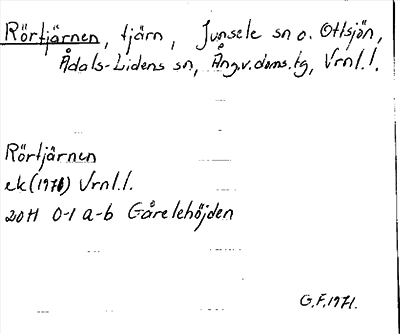 Rörtjärnen, tjärn, Junsele sn o. Ottsjön,
Ådals-Lidens sn, Ång.v.doms.tg, Vrnl.l.
Rörtjärnen
ek (1971) Vrnl.l.
20H 0-1 a-b Gårelehöjden
G.F. 1971.